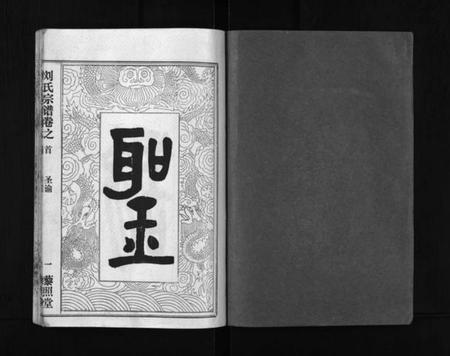 刘氏宗谱卷之
首
圣谕
一
藜照堂
聖